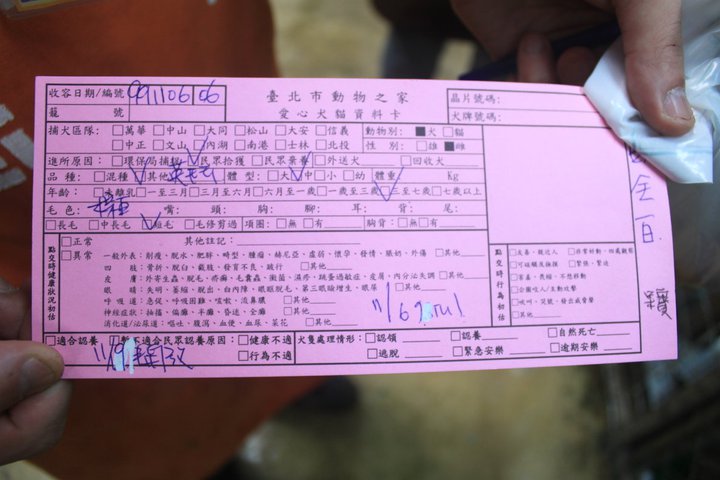 收容日期/編號 991106 06
籠 號
臺北市動物之家
愛心犬貓資料卡
晶片號碼:
犬牌號碼:
捕犬區隊: □萬華 □中山 □大同 □松山 □大安 □信義 動物別: ■犬 □貓
□中正 □文山 □內湖 □南港 □士林 □北投 性 別: □雄 ■雌
進所原因: □環保局捕捉 □民眾拾獲 □民眾棄養 □外送犬 □回收犬
品 種: □混種 □其他 體 型: □大 □中 □小 □幼 體重 Kg
年齡: □未離乳 □一至三月 □三月至六月 □六月至一歲 □一歲至三歲 □三至七歲 □七歲以上
毛 色: 嘴: 頭: 胸: 腳: 耳: 背: 尾:
□長毛 □中長毛 □短毛 □毛修剪過 項圈: □無 □有 胸背: □無 □有
點交時健康狀況初估
□正常 其他註記:
□異常 一般外表: 削瘦、脫水、肥胖、畸型、腫瘤、赫尼亞、虛弱、懷孕、發情、眼奶、外傷 □其他
四 肢: 骨折、脫臼、截肢、發育不良、跛行 □其他
皮 膚: 外寄生蟲、脫毛、疥癬、毛囊蟲、黴菌、濕疹、跳蚤過敏症、皮屑、內分泌失調 □其他
眼 睛: 失明、萎縮、脫出、白內障、眼瞼脫毛、第三眼瞼增生、眼屎 □其他
呼 吸 道: 急促、呼吸困難、咳嗽、流鼻膿 □其他
神經症狀: 抽搐、偏癱、半癱、昏迷、全癱 □其他
消化道/泌尿道: 嘔吐、腹瀉、血便、血尿、菜花 □其他
點交時行為初估
□友善、親近人 □非常好動、四處觀察
□可碰觸及撫摸 □緊張、緊迫
□害羞、畏縮、不想移動
□企圖咬人/主動攻擊
□吠叫、哭號、發出哀聲
□其他
全白
11/6
□適合認養 □暫不適合民眾認養原因: □健康不適 犬隻處理情形: □認領 □認養 □自然死亡
□行為不適 □逃脫 □緊急安樂 □逾期安樂
11/9